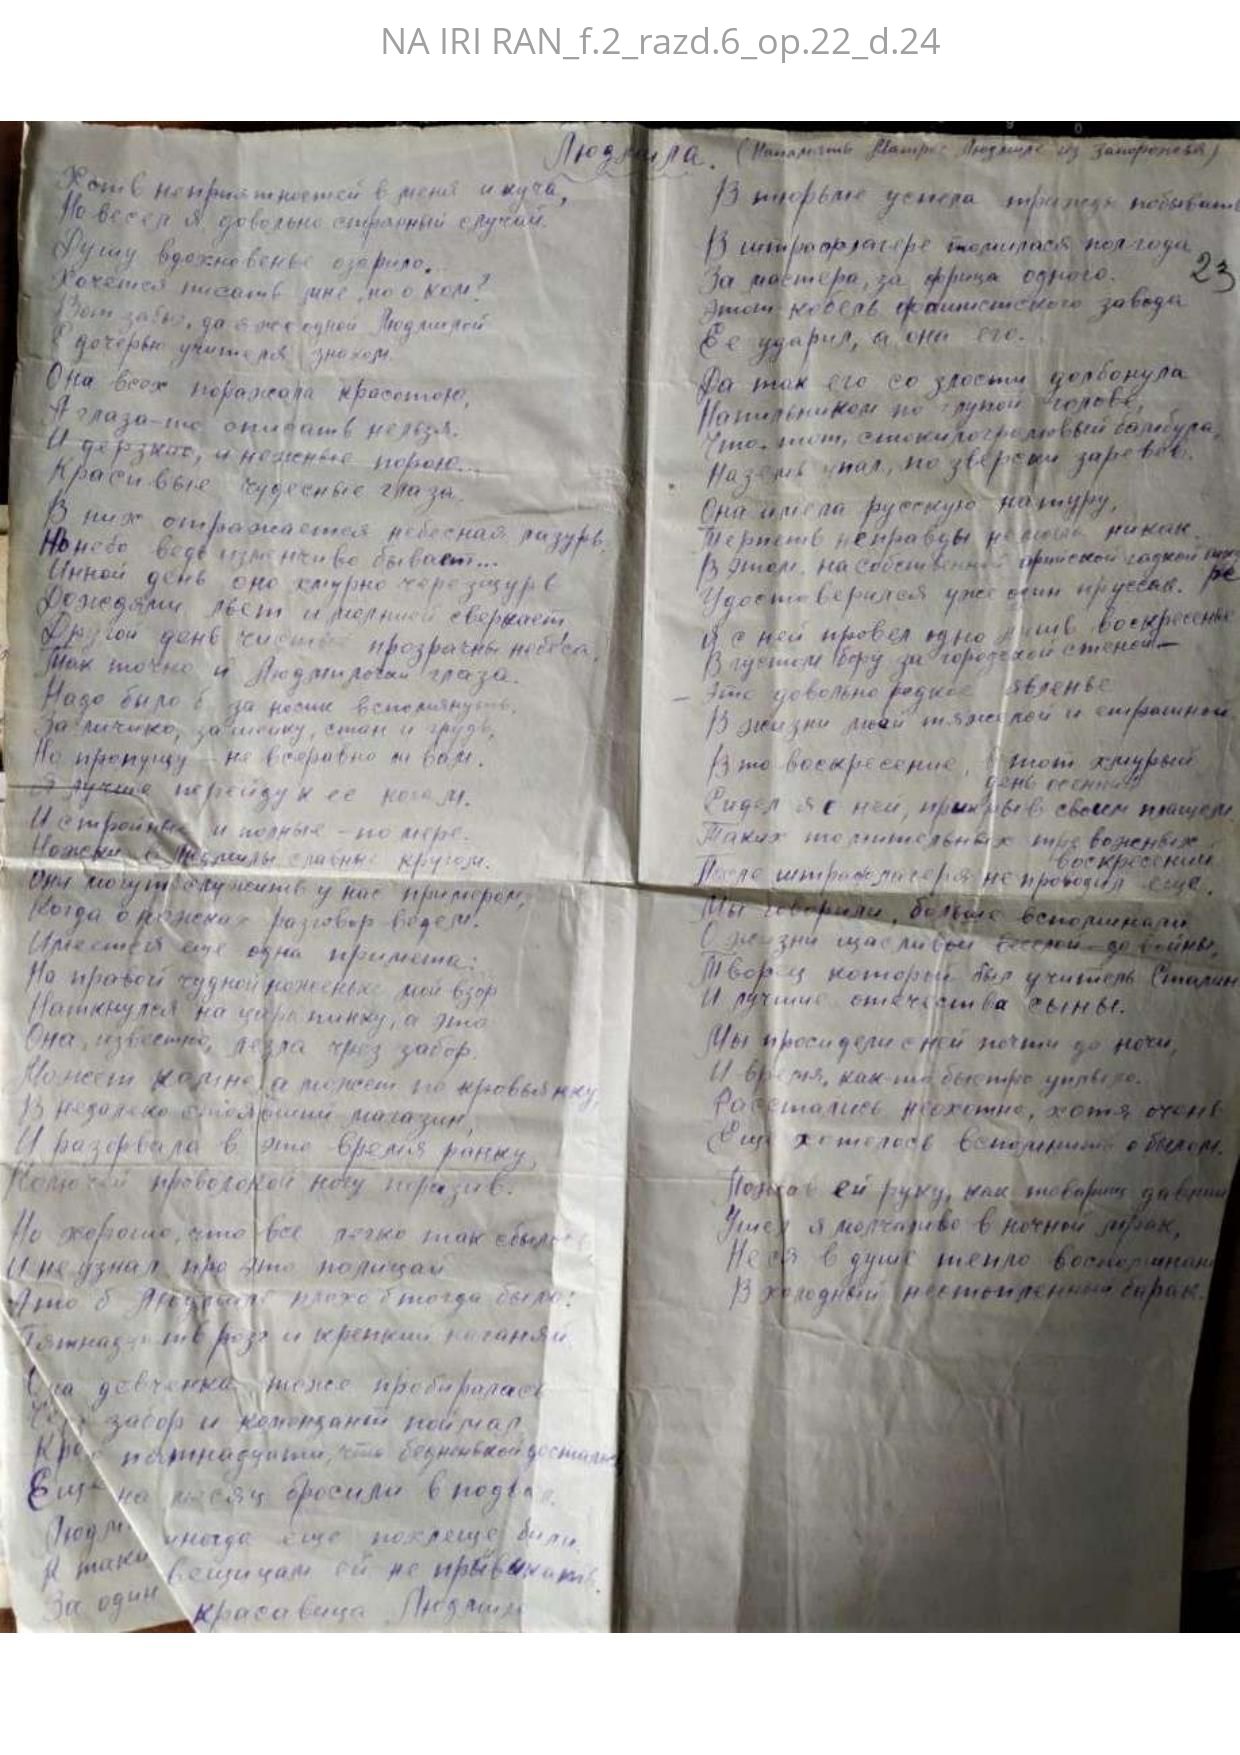 NA IRI RAN_f.2_razd.6_op.22_d.24
Людмила. (Напамять Матрос Людмиле из Запорожья)
23
Хоть неприятностей в меня и куча,
Но весел я, довольно странный случай.
Душу вдохновенье озарило...
Хочется писать мне, но о ком?
Вот забыл, да я же одной Людмилой
С дочерью учителя знаком.
Она всех поражала красотою,
А глаза-то описать нельзя.
И дерзкие, и нежные порою...
Красивые чудесные глаза.
В них отражается небесная лазурь,
Но небо ведь изменчиво бывает...
Инной день оно хмурно черезщурь
Дождями льет и молнией сверкает
Другой день чистые прозрачны небеса,
Так точно и Людмилочки глаза.
Надо было б за носик вспомянуть,
За личико, за шейку, стан и грудь,
Но пропущу – не всеравно ли вам.
Я лучше перейду к ее ногам.
И стройные и полные – по мере.
Ножки в Людмилы славные кругом.
Они могут служить у нас примером,
Когда о ножках разговор ведем.
Имеется еще одна примета:
На правой чудной ноженьке мой взор
Наткнулся на царапинку, а это
Она, известно, лезла чрез забор.
Может ко мне, а может по кровьянку,
В недалеко стоявший магазин,
И разорвала в это время ранку,
Колючей проволокой ногу поразив.
Но хорошо, что все легко так сбылось,
И не узнал про это полицай
А то б Людмиле плохо б тогда было:
Пятнадцать роз и крепкий наганяй.
Одна девченка тоже пробиралась
Чрез забор и комендант поймал
Кроме пятнадцати, что бедненькой достались
Еще на месяц бросили в подвал.
Людмилу иногда еще похлеще били.
К таким вещицам ей не привыкать.
За один красавица Людмила
В тюрьме успела трижды побывать
В штрафлагере томилася полгода
За мастера, за фрица одного.
Этот кобель фашистского завода
Ее ударил, а она его.
Да так его со злости долбонула
Напильником по глупой голове,
Что тот, стокилограмовый бамбула,
Наземь упал, по зверски заревев.
Она имела русскую натуру,
Терпеть неправды не могла никак.
В этом, на собственной арийской гадкой шкуре
Удостоверился уже один пруссак.
Я с ней провел одно лишь воскресенье
В густом бору за городской стеной –
– Это довольно редкое явленье
В жизни моей тяжелой и страшной.
В то воскресение, в тот хмурый
день осенний
Сидел я с ней, прикрыв своим плащем
Таких томительных тревожных
воскресений
После штрафлагеря не проводил еще.
Мы говорили, больше вспоминали
О жизни щасливой веселой до войны,
Творец который был учитель Сталин
И лучшие отечества сыны.
Мы просидели с ней почти до ночи,
И время, как-то быстро уплыло.
Расстались неохотно, хотя очень
Еще хотелось вспомнить о былом.
Пожав ей руку, как товарищ давний
Ушел я молчаливо в ночной мрак,
Неся в душе тепло воспоминаний
В холодный нестопленный барак.